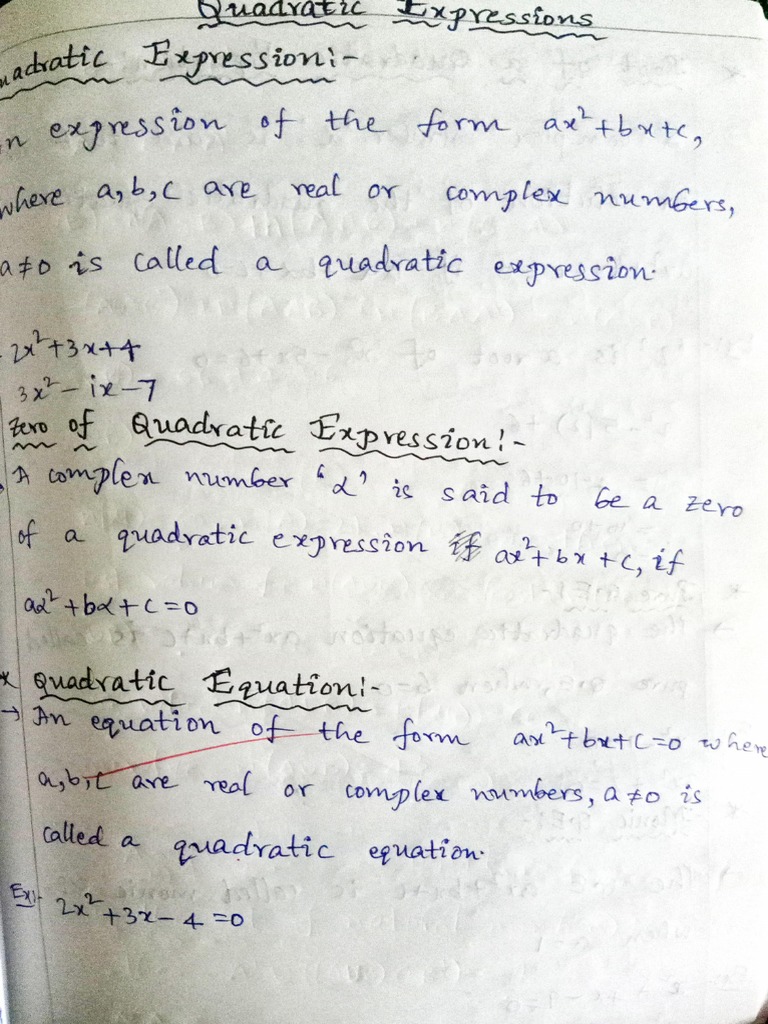 Quadratic Expressions
uadratic Expression:-
n expression of the form ax²+bx+c,
where a,b,c are real or complex numbers,
a≠0 is called a quadratic expression.
2x²+3x+4
3x²-ix-7
Zero of Quadratic Expression:-
A complex number 'α' is said to be a zero
of a quadratic expression ax²+bx+c, if
aα²+bα+c=0
* Quadratic Equation:-
→ An equation of the form ax²+bx+c=0 where
a,b,c are real or complex numbers, a≠0 is
called a quadratic equation.
Ex:- 2x²+3x-4=0